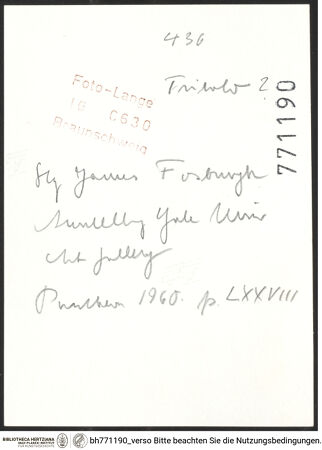 436
Tribolo ?
Foto-Lange
C630
Braunschweig
771190
Slg James Fosburgh
Yale Univ
Art Gallery
Pantheon 1960. p. LXXVIII
BIBLIOTHECA HERTZIANA
MAX-PLANCK-INSTITUT
FÜR KUNSTGESCHICHTE
bh771190_verso Bitte beachten Sie die Nutzungsbedingungen.